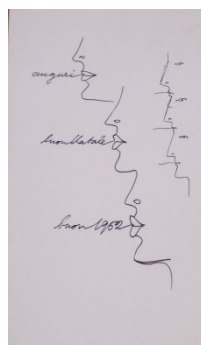 auguri
buon Natale
buon 1952